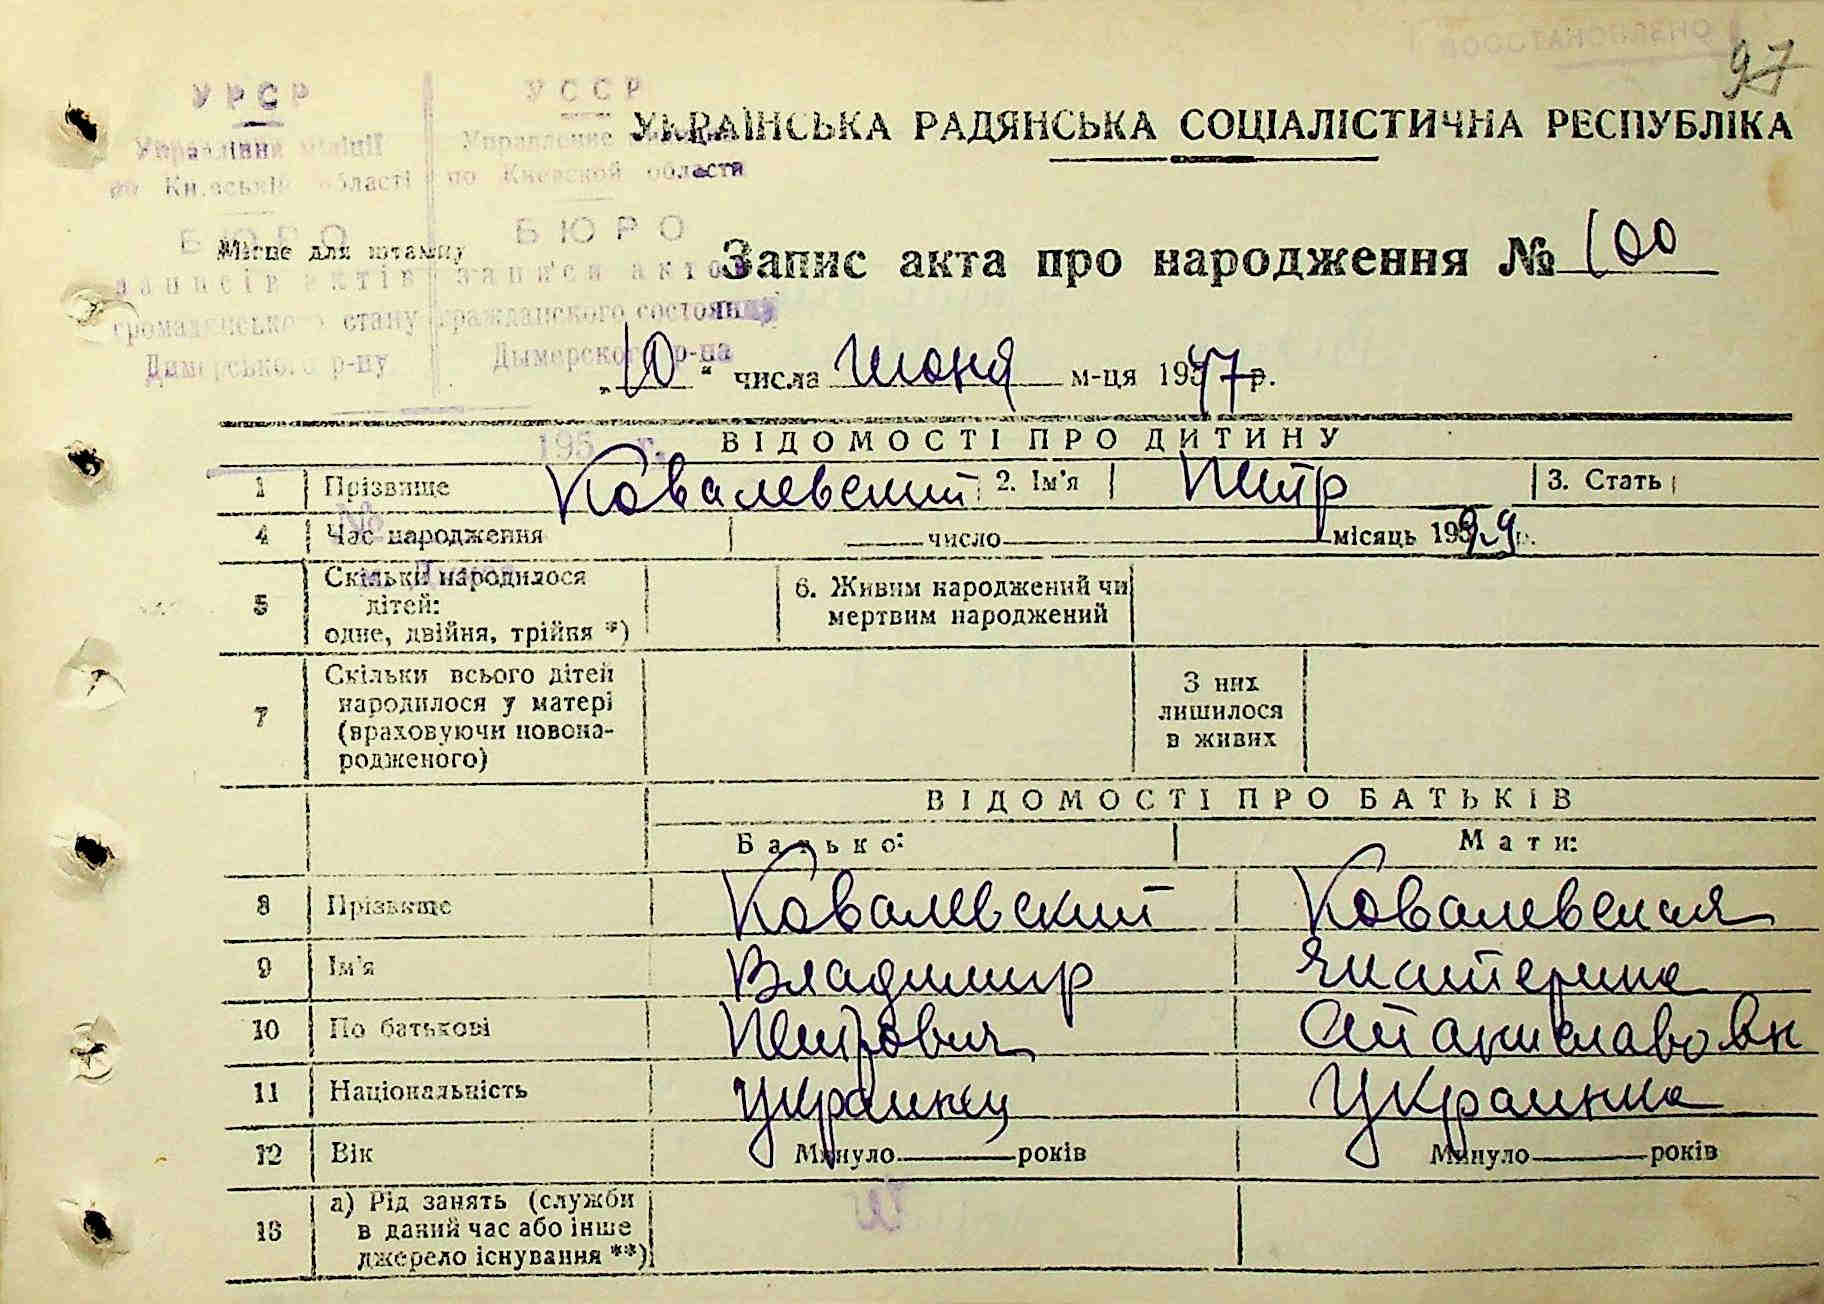 97
УРСР УССР
Управління міліції Управление
по Київській області по Киевской области
УКРАЇНСЬКА РАДЯНСЬКА СОЦІАЛІСТИЧНА РЕСПУБЛІКА
БЮРО БЮРО
Місце для штампу
записів актів записи актов
громадянського стану гражданского состояния
Димерського р-ну Дымерского р-на
Запис акта про народження № 100
„10“ числа Июня м-ця 1947 р.
195 г.
ВІДОМОСТІ ПРО ДИТИНУ
1 Прізвище Ковалевский 2. Ім'я Петр 3. Стать
№
4 Час народження число місяць 1929 р.
5 Скільки народилося
дітей:
одне, двійня, трійня *)
6. Живим народжений чи
мертвим народжений
7 Скільки всього дітей
народилося у матері
(враховуючи новона-
родженого)
З них
лишилося
в живих
ВІДОМОСТІ ПРО БАТЬКІВ
Батько: Мати:
8 Прізвище Ковалевский Ковалевская
9 Ім'я Владимир Екатерина
10 По батькові Петрович Станиславовн
11 Національність Украинец Украинка
12 Вік Минуло років Минуло років
13 а) Рід занять (служби
в даний час або інше
джерело існування **)